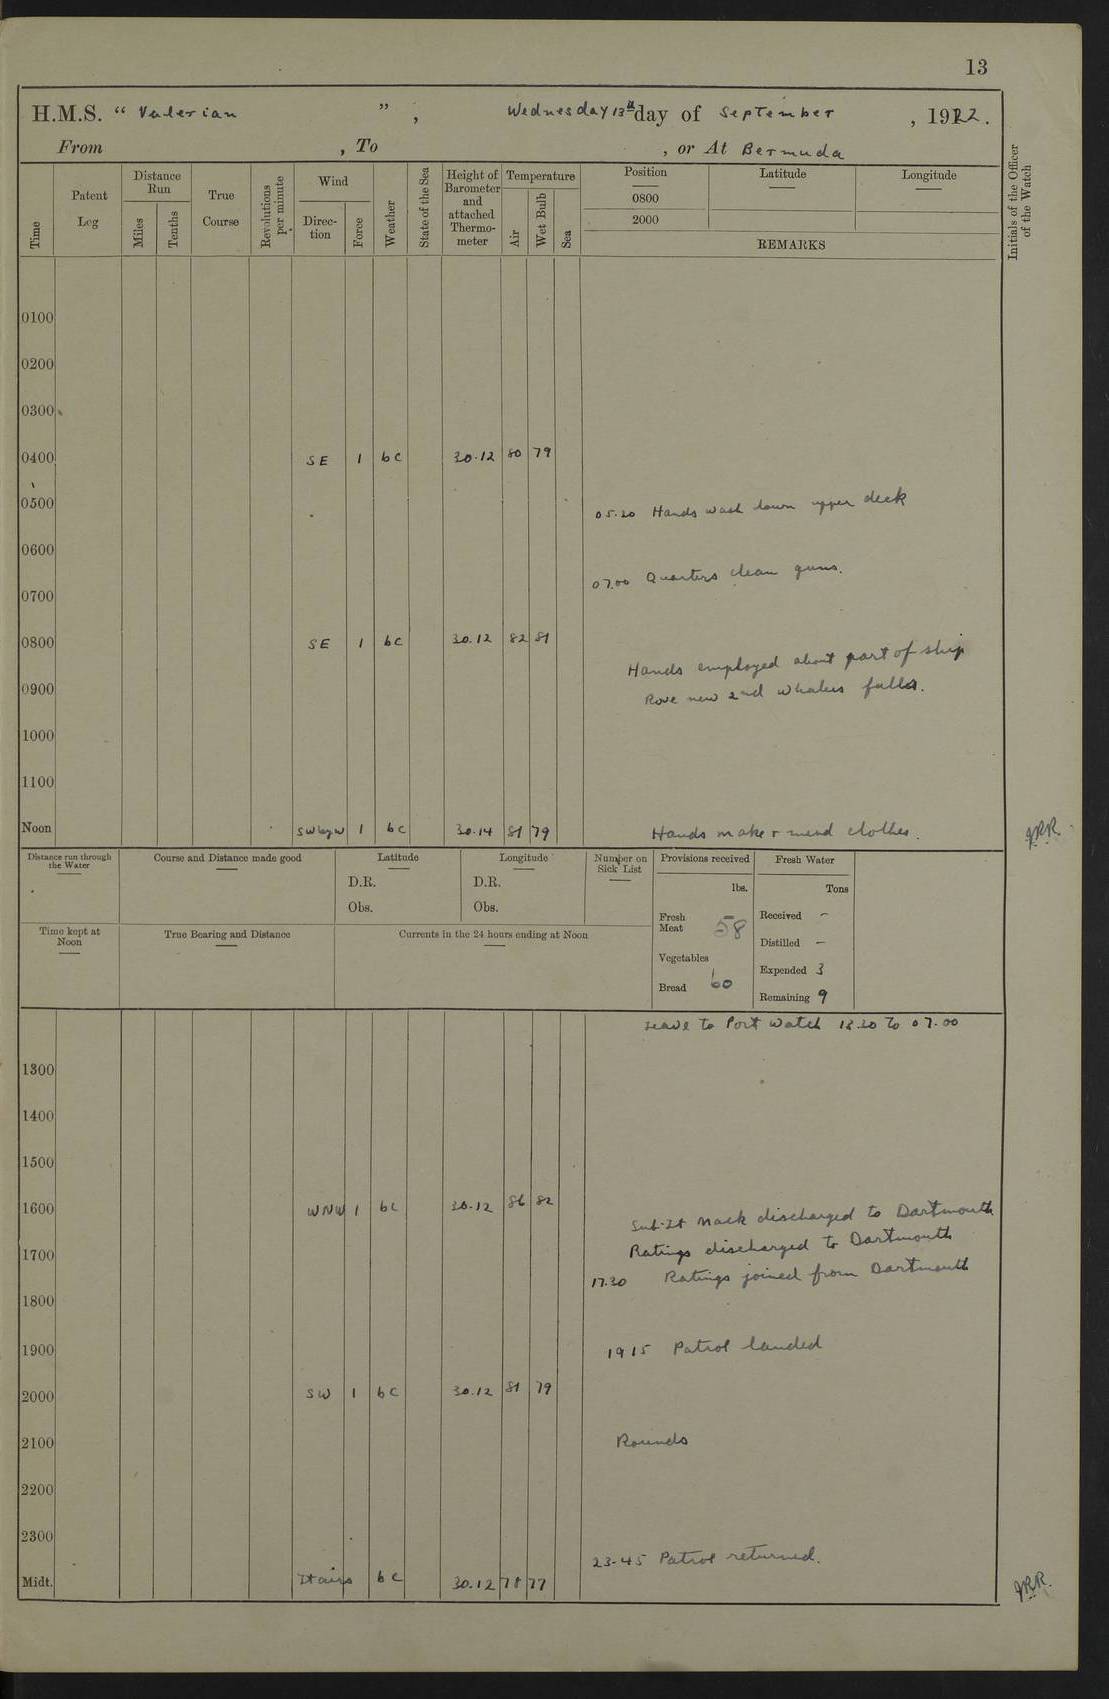 13
H.M.S. “ Valerian ”, Wednesday 13th day of September, 1922.
From , To , or At Bermuda
Time
Patent Log
Distance Run
Miles
Tenths
True Course
Revolutions per minute
Wind
Direction
Force
Weather
State of the Sea
Height of Barometer and attached Thermometer
Temperature
Air
Wet Bulb
Sea
Position
Latitude
Longitude
0800
2000
REMARKS
Initials of the Officer of the Watch
0100
0200
0300
0400 SE 1 bc 30.12 80 79
0500
05.20 Hands wash down upper deck
0600
07.00 Quarters clean guns.
0700
0800 SE 1 bc 30.12 82 81
Hands employed about part of ship
0900
Rove new 2nd whalers falls.
1000
1100
Noon SWbyW 1 bc 30.14 81 79 Hands make & mend clothes. JRR.
Distance run through the Water
Course and Distance made good
Latitude
D.R.
Obs.
Longitude
D.R.
Obs.
Number on Sick List
Provisions received
lbs.
Fresh Meat 58
Vegetables
Bread 60
Fresh Water
Tons
Received -
Distilled -
Expended 3
Remaining 9
Time kept at Noon
True Bearing and Distance
Currents in the 24 hours ending at Noon
Leave to Port Watch 13.20 to 07.00
1300
1400
1500
1600 WNW 1 bc 30.12 86 82
Sub-Lt Mack discharged to Dartmouth
Ratings discharged to Dartmouth
1700
17.20 Ratings joined from Dartmouth
1800
1900 1915 Patrol landed
2000 SW 1 bc 30.12 81 79
2100 Rounds
2200
2300
23-45 Patrol returned.
Midt. Lt airs bc 30.12 78 77 JRR.